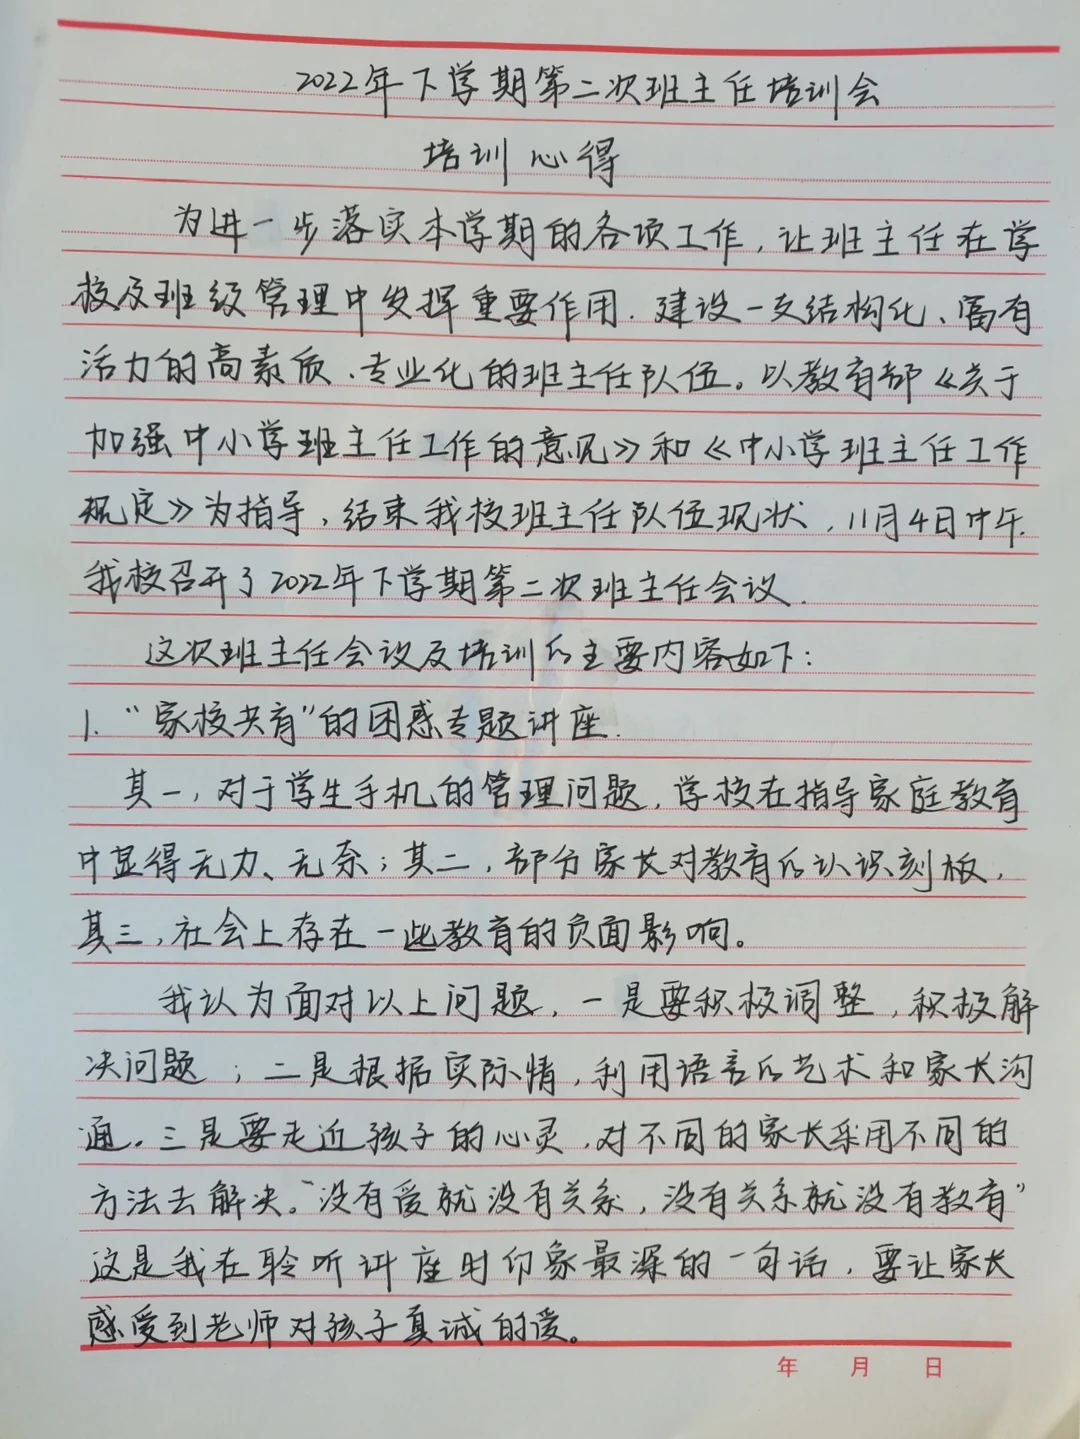 2022年下学期第二次班主任培训会
培训心得
为进一步落实本学期的各项工作，让班主任在学
校及班级管理中发挥重要作用．建设一支结构化、富有
活力的高素质、专业化的班主任队伍。以教育部《关于
加强中小学班主任工作的意见》和《中小学班主任工作
规定》为指导，结束我校班主任队伍现状，11月4日中午．
我校召开了2022年下学期第二次班主任会议．
这次班主任会议及培训的主要内容如下：
1．“家校共育”的困惑专题讲座．
其一，对于学生手机的管理问题，学校在指导家庭教育
中显得无力、无奈；其二，部分家长对教育的认识刻板，
其三，社会上存在一些教育的负面影响。
我认为面对以上问题，一是要积极调整，积极解
决问题；二是根据实际情，利用语言的艺术和家长沟
通。三是要走近孩子的心灵，对不同的家长采用不同的
方法去解决。“没有爱就没有关系，没有关系就没有教育”
这是我在聆听讲座时印象最深的一句话，要让家长
感受到老师对孩子真诚的爱。
年 月 日